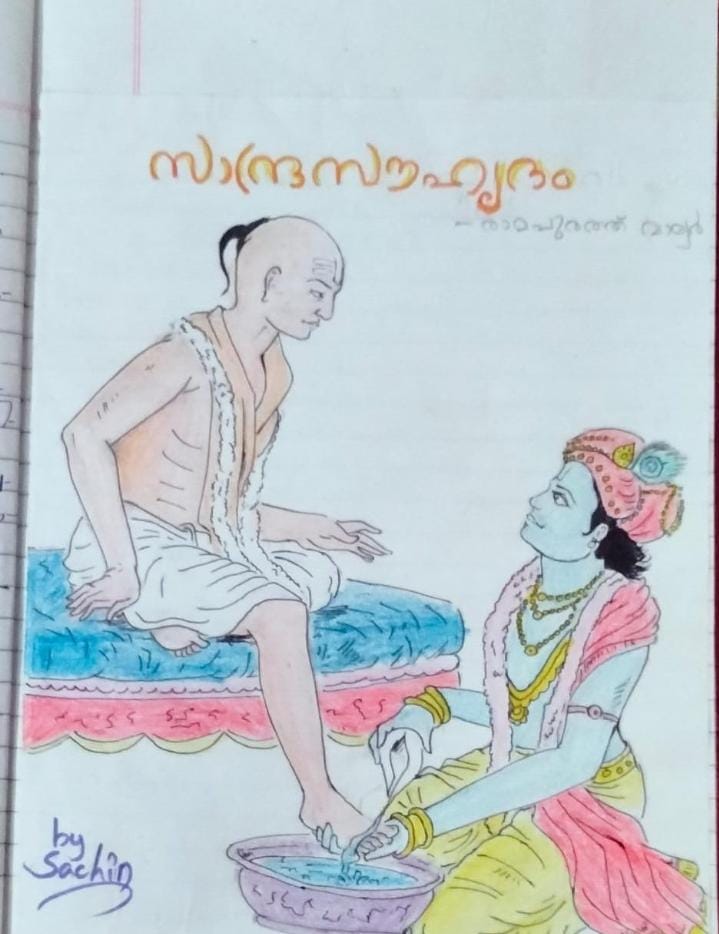 സാന്ദ്രസൗഹൃദം
- രാമപുരത്ത് വാര്യർ
by
Sachin